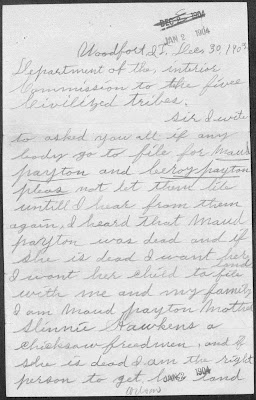 DEC 5 1904
JAN 2 1904
Woodford, I.T. Dec 30, 1903
Department of the, interior
Commission to the five
Civilized tribes.
Sir I write
to asked you all if any
body go to file for Maud
payton and leeroy payton
pleas not let them file
untill I hear from them
again, I heard that Maud
payton was dead and if
she is dead I want her land
I wont her child to file
with me and my family
I am Maud payton Mother
Slinnie Hawkins a
chicksaw freedmen, and if
she is dead I am the right
person to get her land
JAN 2 1904